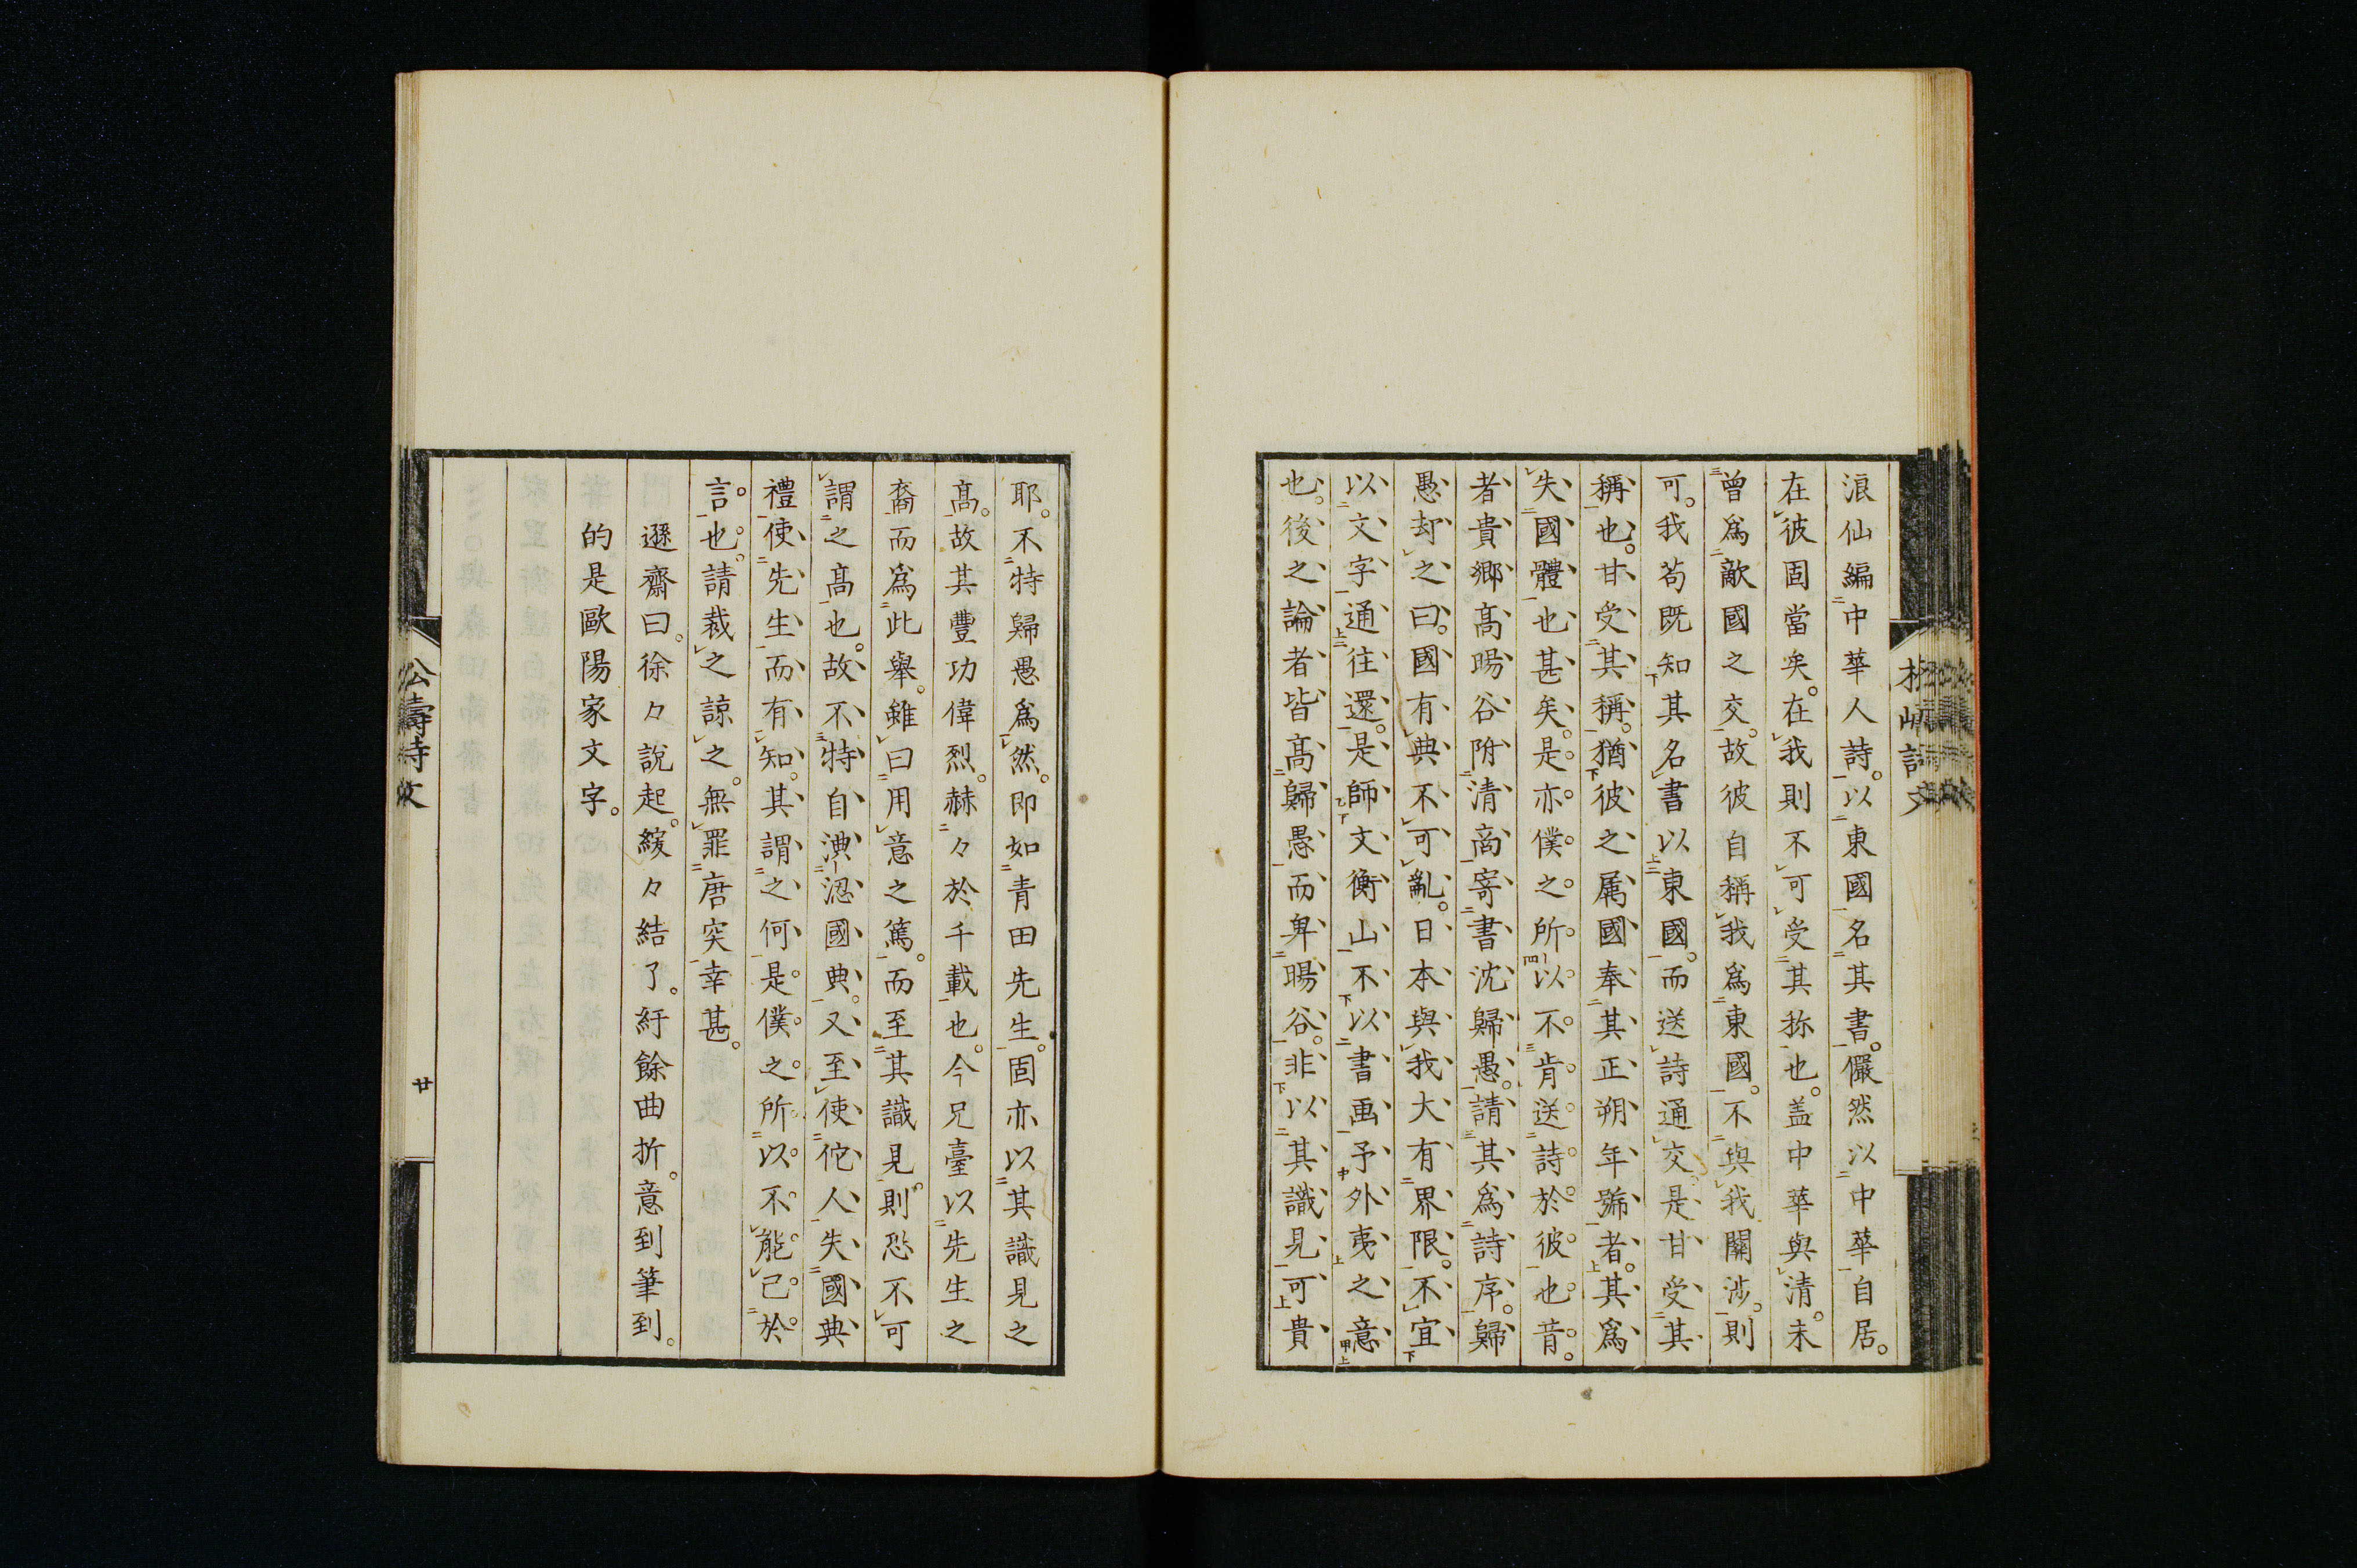 浪仙編中華人詩。以東國名其書。儼然以中華自居。
在彼固當矣。在我則不可受其称也。盖中華與清。未
曾爲敵國之交。故彼自稱我爲東國。不與我關渉。則
可。我苟既知其名書以東國。而送詩通交。是甘受其
稱也。甘受其稱。猶彼之属國奉其正朔年號者。其爲
失國體也甚矣。是亦僕之所以不肯送詩於彼也。昔
者貴鄉髙暘谷附清商寄書沈歸愚。請其爲詩序。歸
愚却之曰。國有典不可亂。日本與我大有界限。不宜
以文字通往還。是師文衡山不以書画予外夷之意
也。後之論者皆髙歸愚而卑暘谷。非以其識見可貴
耶。不特歸愚爲然。即如青田先生。固亦以其識見之
髙。故其豐功偉烈。赫々於千載也。今兄臺以先生之
裔而爲此舉。雖曰用意之篤。而至其識見。則恐不可
謂之髙也。故不特自淟涊國典。又至使佗人失國典
禮使先生而有知。其謂之何。是僕之所以不能已於
言也。請裁之諒之。無罪唐突幸甚。
遜齋曰。徐々說起。緩々結了。紆餘曲折。意到筆到。
的是歐陽家文字。
公壽詩文
廿